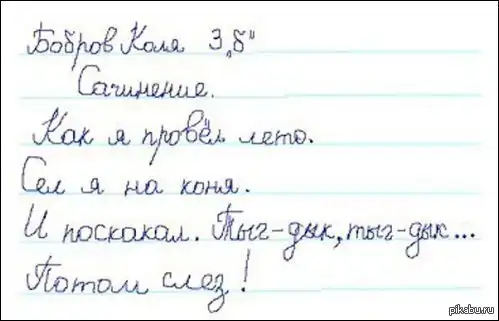 Бобров Коля 3„б"
Сочинение.
Как я провёл лето.
Сел я на коня.
И поскакал. Тыг-дык, тыг-дык...
Потом слез!
pikabu.ru